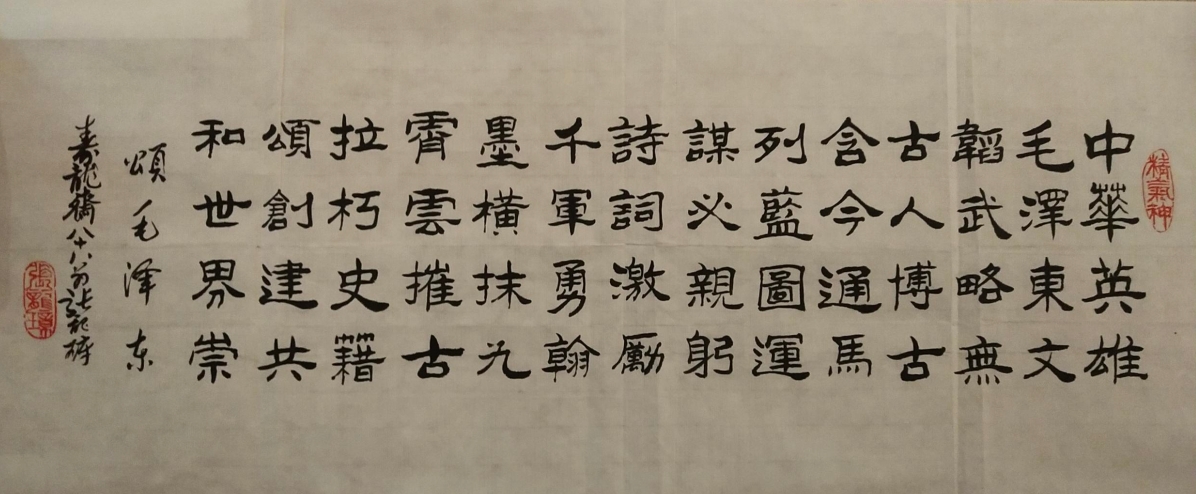 精氣神
中華英雄
毛澤東文
韜武略無
古人博古
含今通馬
列藍圖運
謀必親躬
詩詞激勵
千軍勇翰
墨橫抹九
霄雲摧古
拉朽史籍
頌創建共
和世界崇
頌毛泽东
八十八